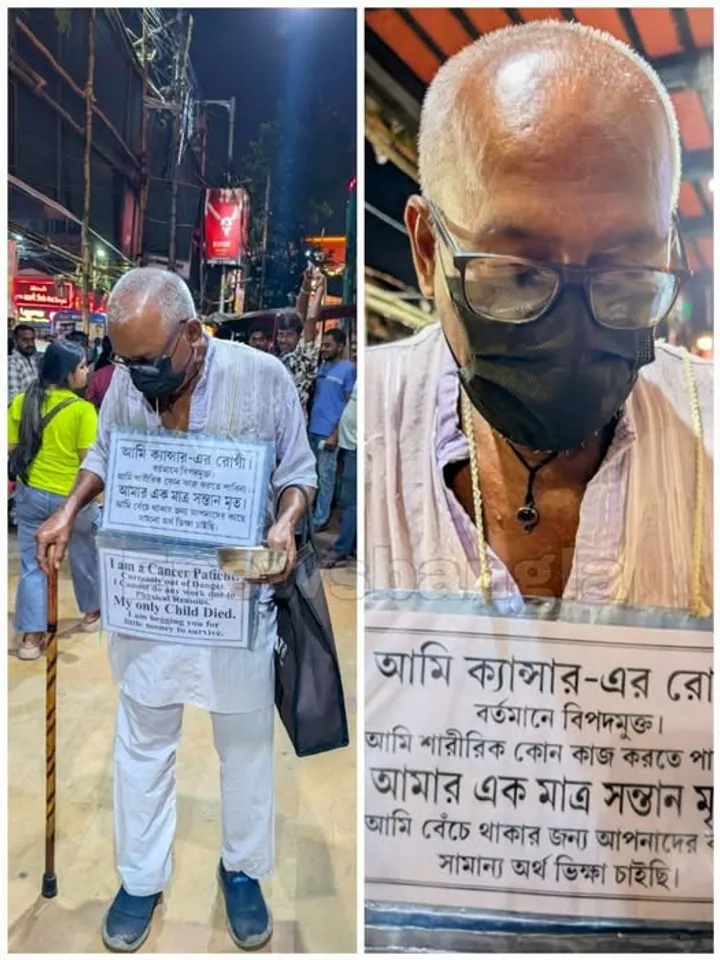 আমি ক্যান্সার-এর রোগী।
বর্তমানে বিপদমুক্ত।
আমি শারীরিক কোন কাজ করতে পারিনা।
আমার এক মাত্র সন্তান মৃত।
আমি বেঁচে থাকার জন্য আপনাদের কাছে
সামান্য অর্থ ভিক্ষা চাইছি।
I am a Cancer Patient.
Currently out of Danger.
I Cannot do any work due to
physical Reasons.
My only Child Died.
I am begging you for
little money to survive.
আমি ক্যান্সার-এর রো
বর্তমানে বিপদমুক্ত।
আমি শারীরিক কোন কাজ করতে পা
আমার এক মাত্র সন্তান মৃ
আমি বেঁচে থাকার জন্য আপনাদের
সামান্য অর্থ ভিক্ষা চাইছি।